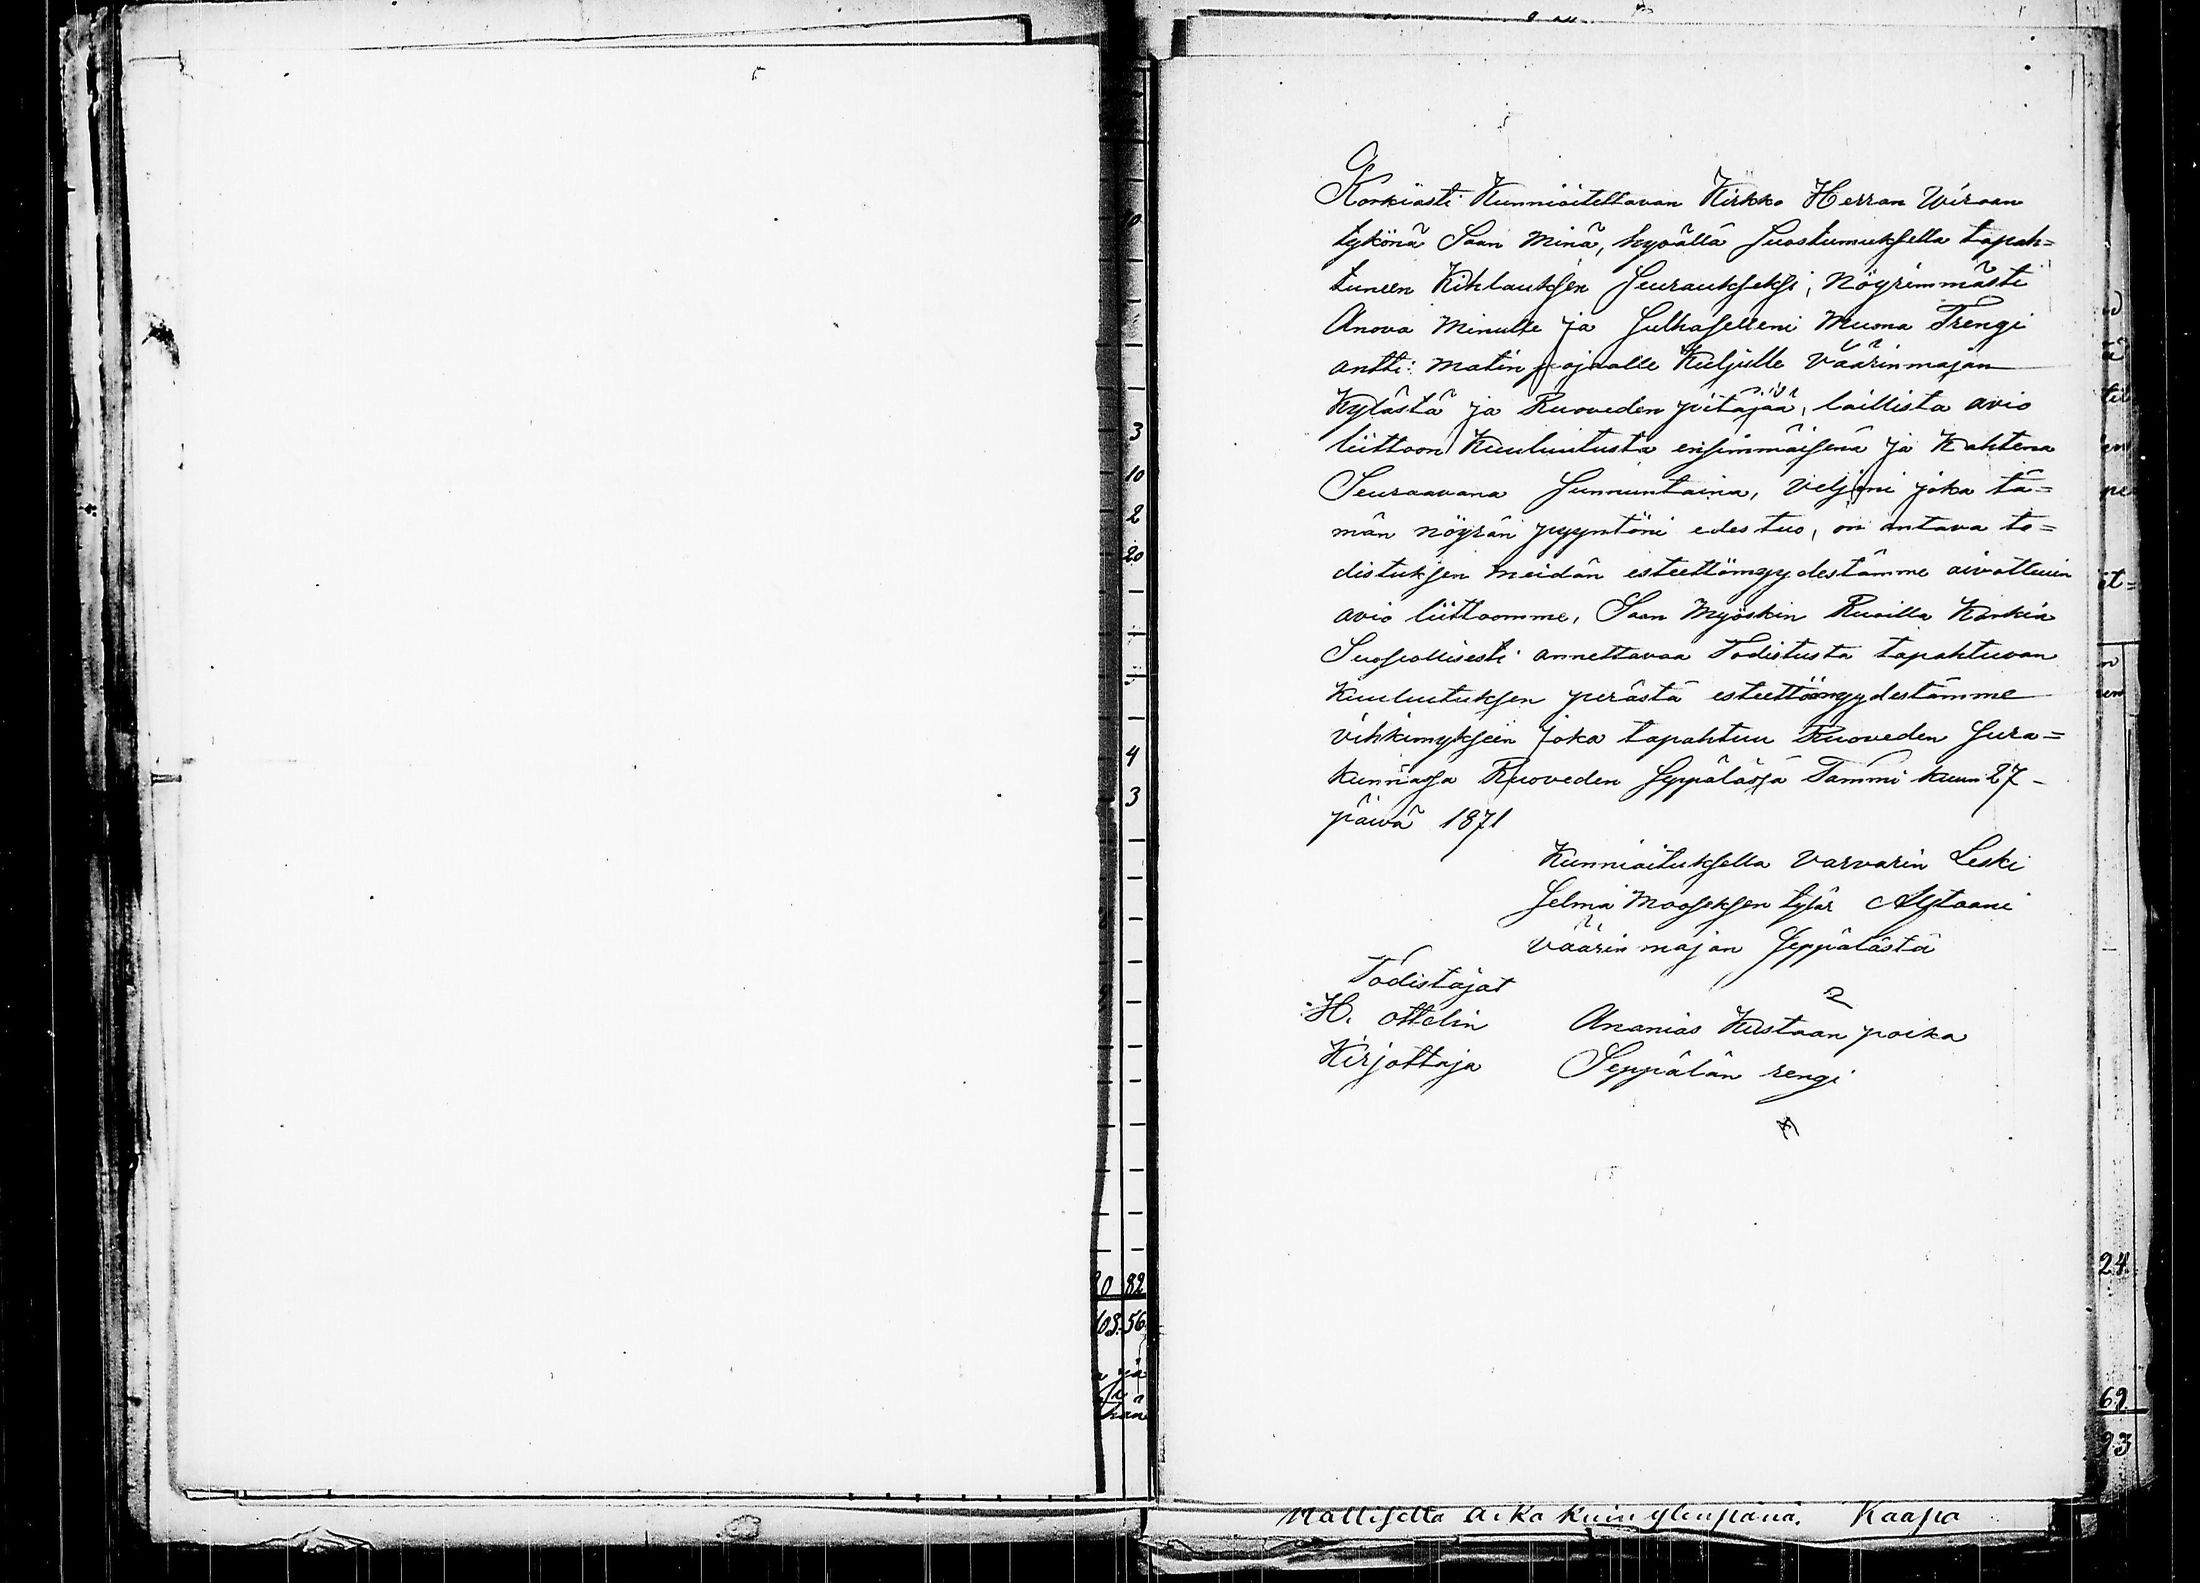 Korkiasti Kunnioitettavan Kirkko Herran Wiraan
tykönä Saan Minä, hyvällä Suostumuksella tapah=
tuneen Kihlauksen Seuraukseksi, Nöyrimmästi
Anova Minulle ja Sulhaselleni Muona Trengi
antti: Matin pojaalle Kuljulle Väärinmajan
Kylästä ja Ruoveden pitäjää, laillista avio
liittoon Kuuluutusta ensimmäisenä ja Kahtena
Seuraavana Sunnuntaina, Veljeni joka tä=
män nöyrän pyyntöni edestuo, on antava to=
distuksen Meidän esteettömyydestämme aivottuun
avio liittoomme, Saan Myöskin Ruoilla Korkia
Suosiollisesti annettavaa Todistusta tapahtuvan
Kuuluutuksen perästä esteettöömyydestämme
Vihkimykseen joka tapahtuu Ruoveden Sura=
kunnassa Ruoveden Seppälässä Tammi kuun 27
päivä 1871
Kunnioituksella Varvarin Leski
Selma Mooseksen tytär
Väärin majan Seppälästä
Todistajat
H. ottelin Ananias Kustaan poika
Kirjottaja Seppälän rengi
0
3
10
2
20
4
3
0 82
63 56
ja
24
69
93
aika kuin Kaapa